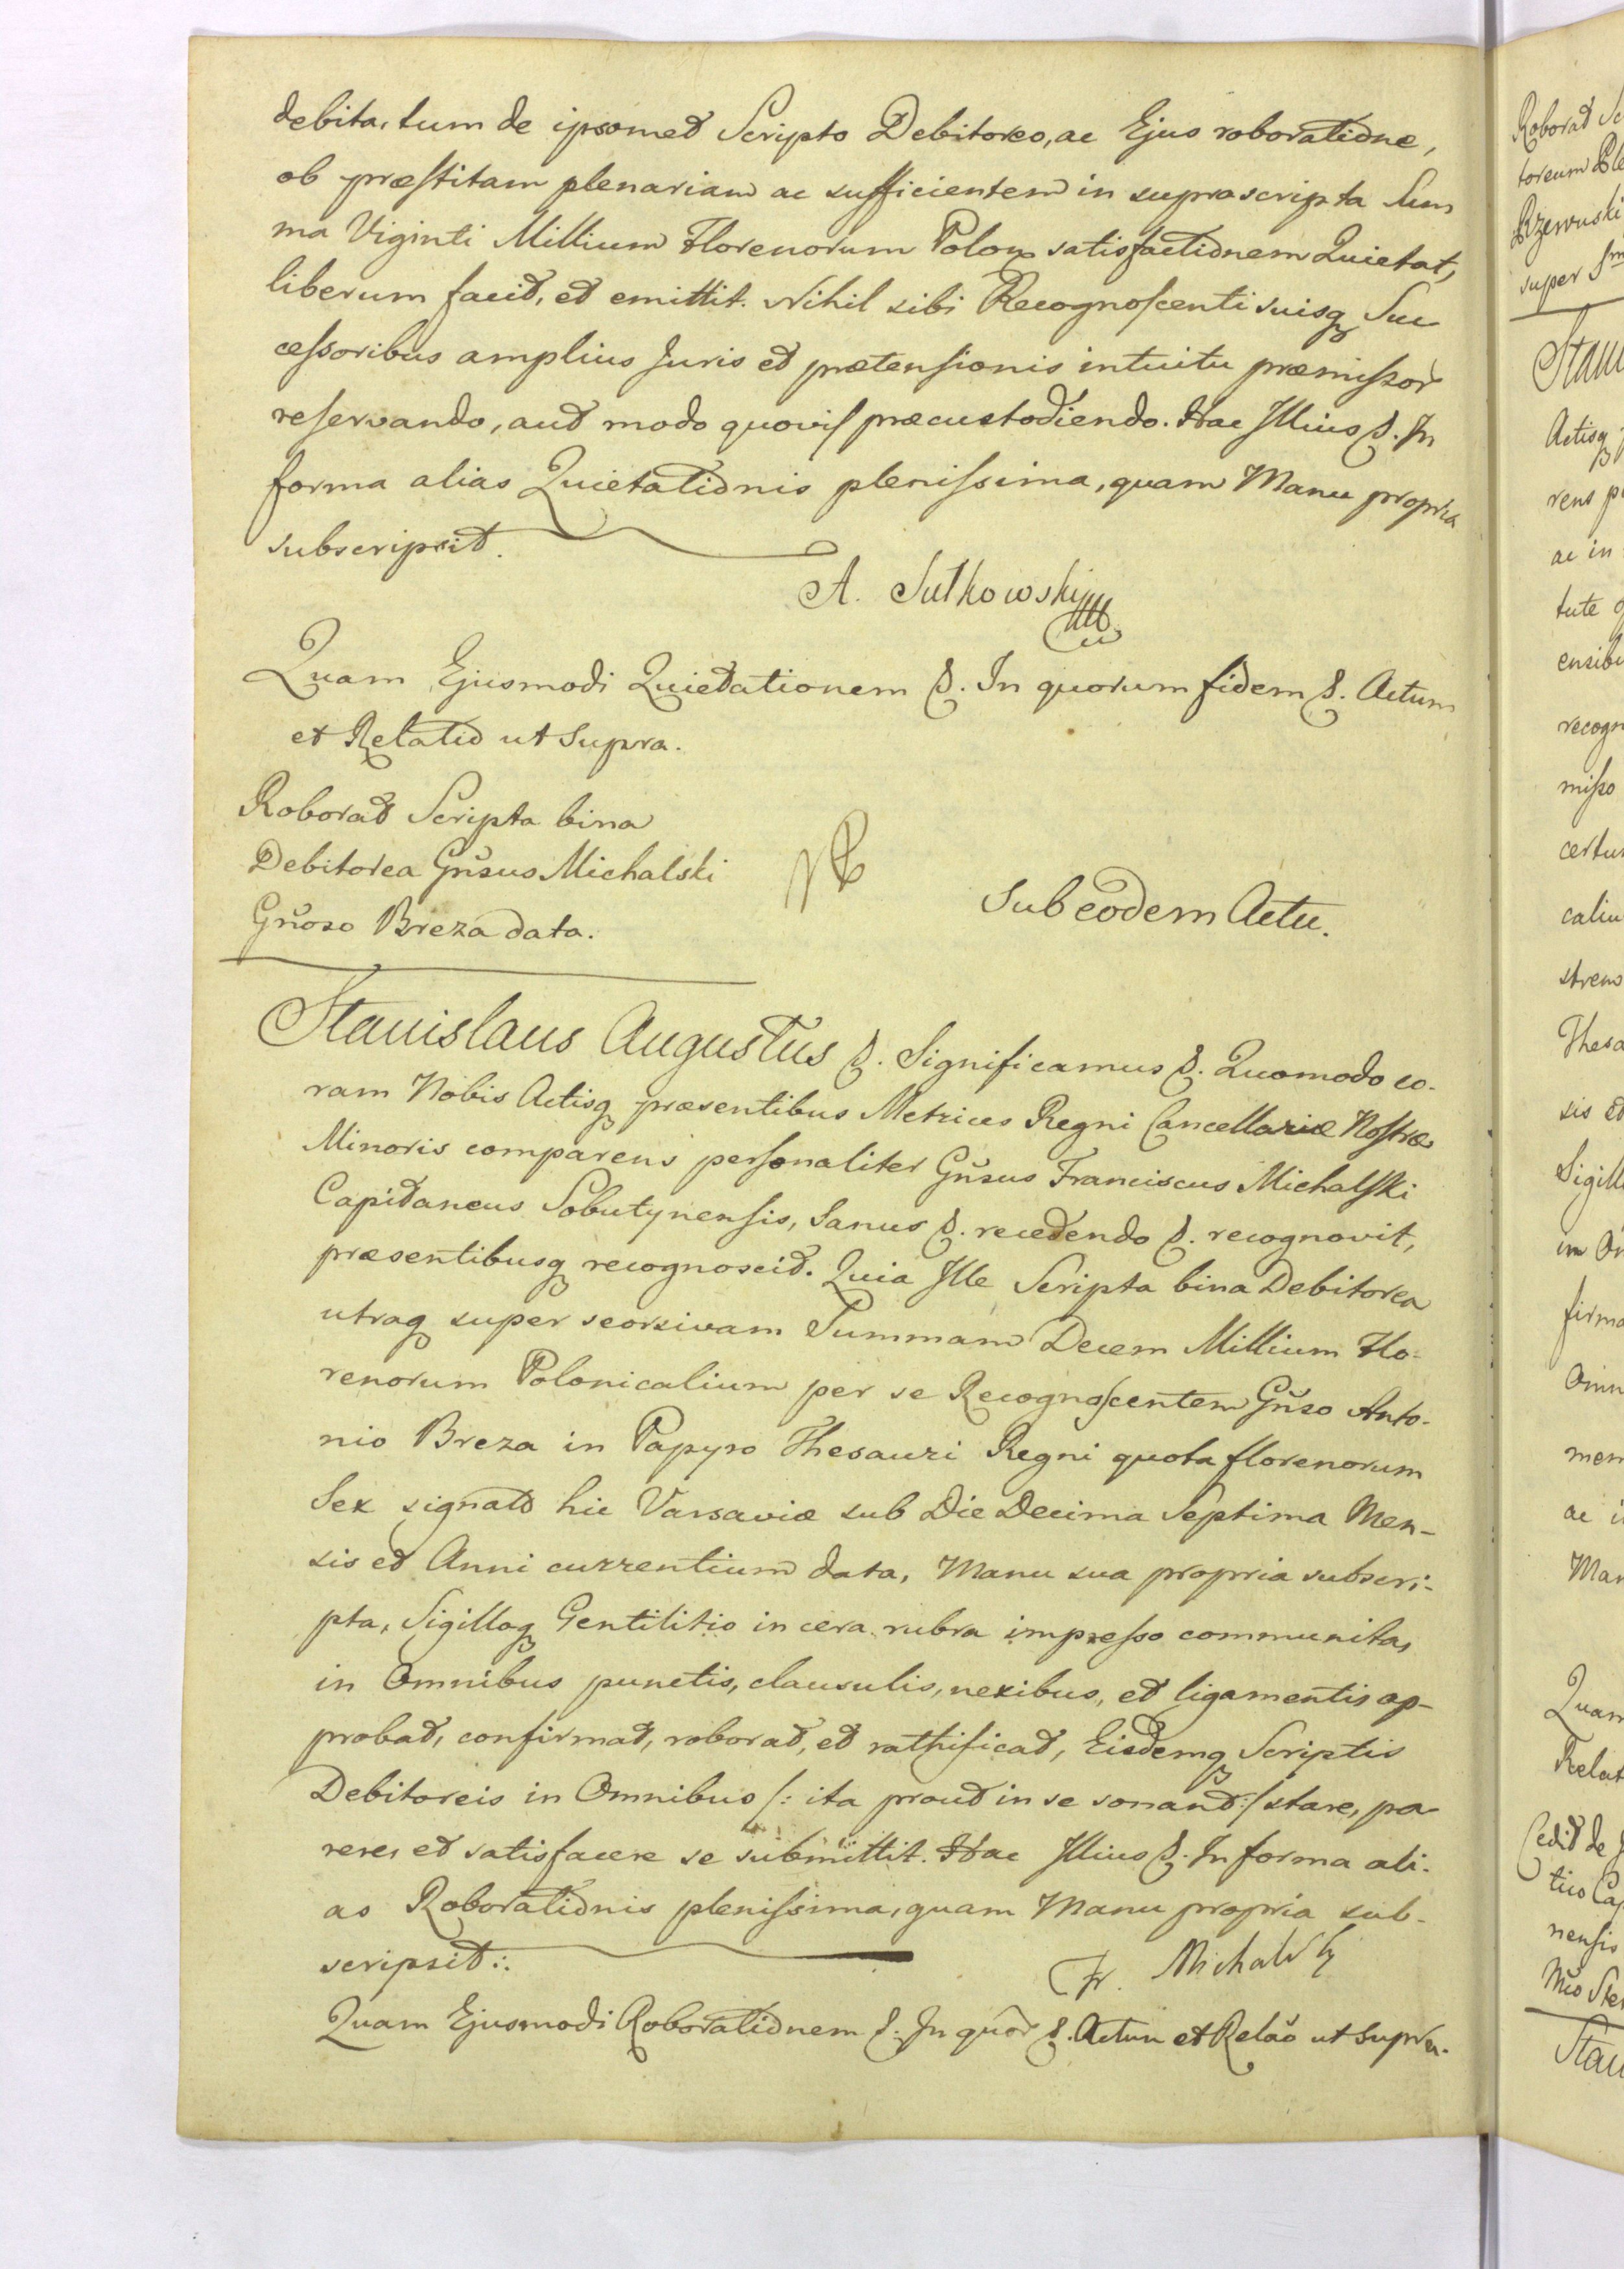 debita, tum de ipsomet Scripto Debitoreo, ac Ejus roboratione,
ob præstitam plenariam ac sufficientem in suprascripta Sum
ma Viginti Millium Florenorum Polon satisfactionem Quietat,
liberum facit, et emittit. Nihil sibi Recognoscenti suisq Suc
cessoribus amplius Juris et prætensionis intuitu præmissor
reservando, aut modo quovis præcustodiendo. Hac Illius &. In
forma alias Quietationis plenissima, quam Manu propria
subscripsit.
A. Sułkowski
Quam Ejusmodi Quietationem &. In quorum fidem &. Actum
et Relatio ut Supra.
Roborat Scripta bina
Debitorea Gnsus Michalski
Gnoso Breza data.
Sub eodem Actu.
Stanislaus Augustus &. Significamus &. Quomodo co-
ram Nobis Actisq præsentibus Metrices Regni Cancellariæ Nostræ
Minoris comparens personaliter Gnsus Franciscus Michalski
Capitaneus Sobutynensis, Sanus &. recedendo &. recognovit,
præsentibusq recognoscit. Quia Ille Scripta bina Debitorea
utraq super seorsivam Summam Decem Millium Flo-
renorum Polonicalium per se Recognoscentem Gnso Anto-
nio Breza in Papyro Thesauri Regni quota florenorum
Sex signato hic Varsaviæ sub Die Decima Septima Men-
sis et Anni currentium data, Manu sua propria subscri-
pta, Sigilloq Gentilitio in cera rubra impresso communita,
in Omnibus punctis, clausulis, nexibus, et ligamentis ap-
probat, confirmat, roborat, et rathificat, Eisdemq Scriptis
Debitoreis in Omnibus /: ita prout in se sonant :/ stare, pa
rere, et satisfacere se submittit. Hac Illius &. In forma ali-
as Roborationis plenissima, quam Manu propria sub-
scripsit:.
Fr. Michalski
Quam Ejusmodi Roborationem &. In quor &. Actum et Relao ut Supra.
Roborat
toreum
Rzewuski
super
Actisq
rens
ac in
tute
ensibu
recogn
misso
certu
caliu
strem
Thesa
sis et
Sigill
in
firma
Omn
mem
ac
Man
Quam
Relat
Cedit de
tius
nensis